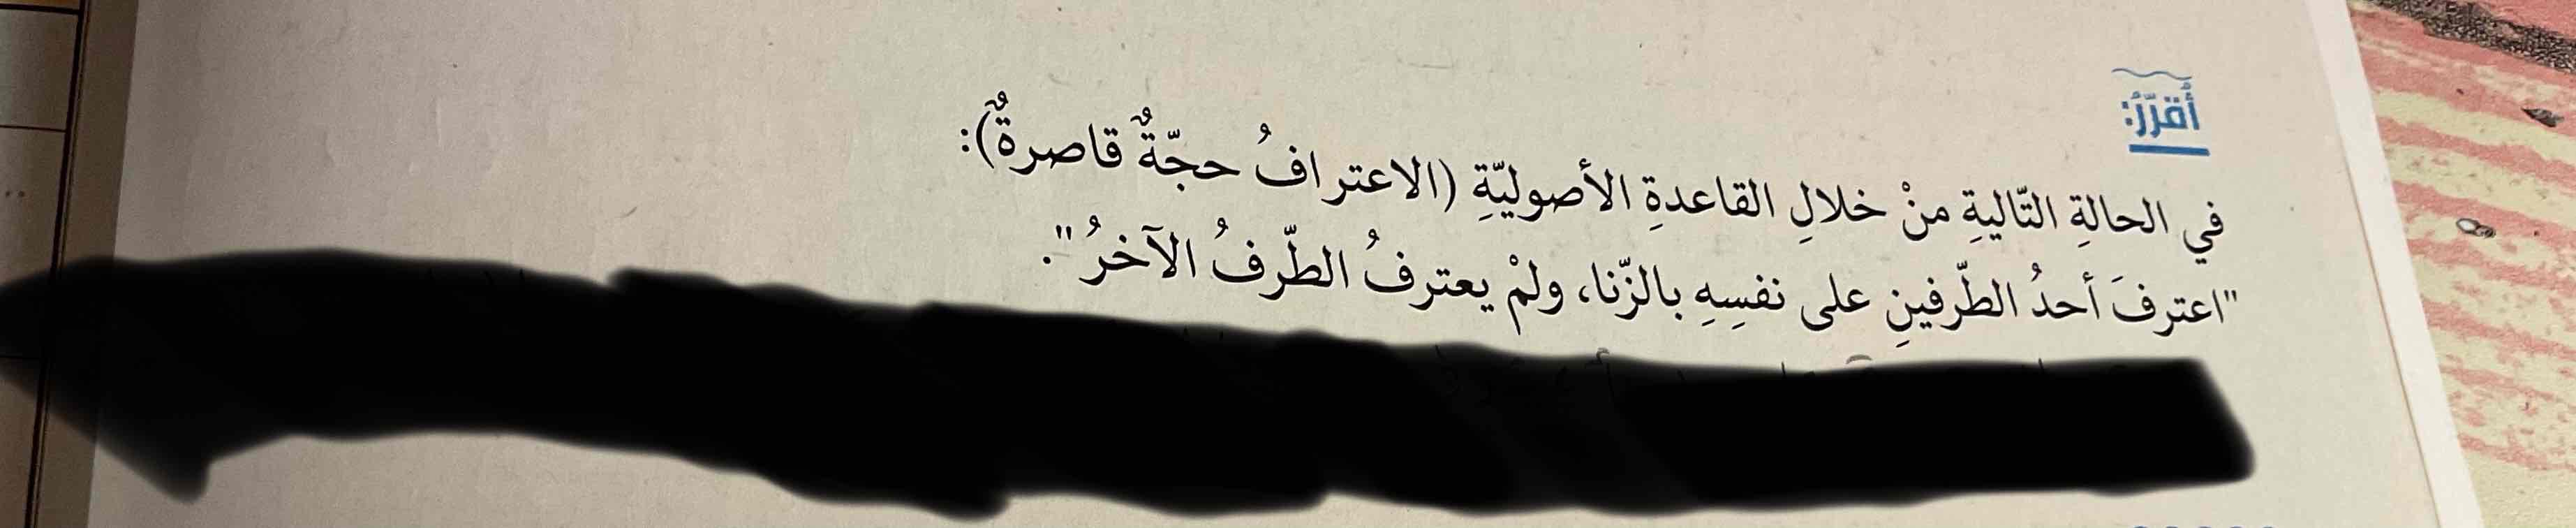 أُقرّرُ:
في الحالةِ التّاليةِ منْ خلالِ القاعدةِ الأصوليّةِ (الاعترافُ حجّةٌ قاصرةٌ):
"اعترفَ أحدُ الطّرفينِ على نفسِهِ بالزّنا، ولمْ يعترفُ الطّرفُ الآخرُ".